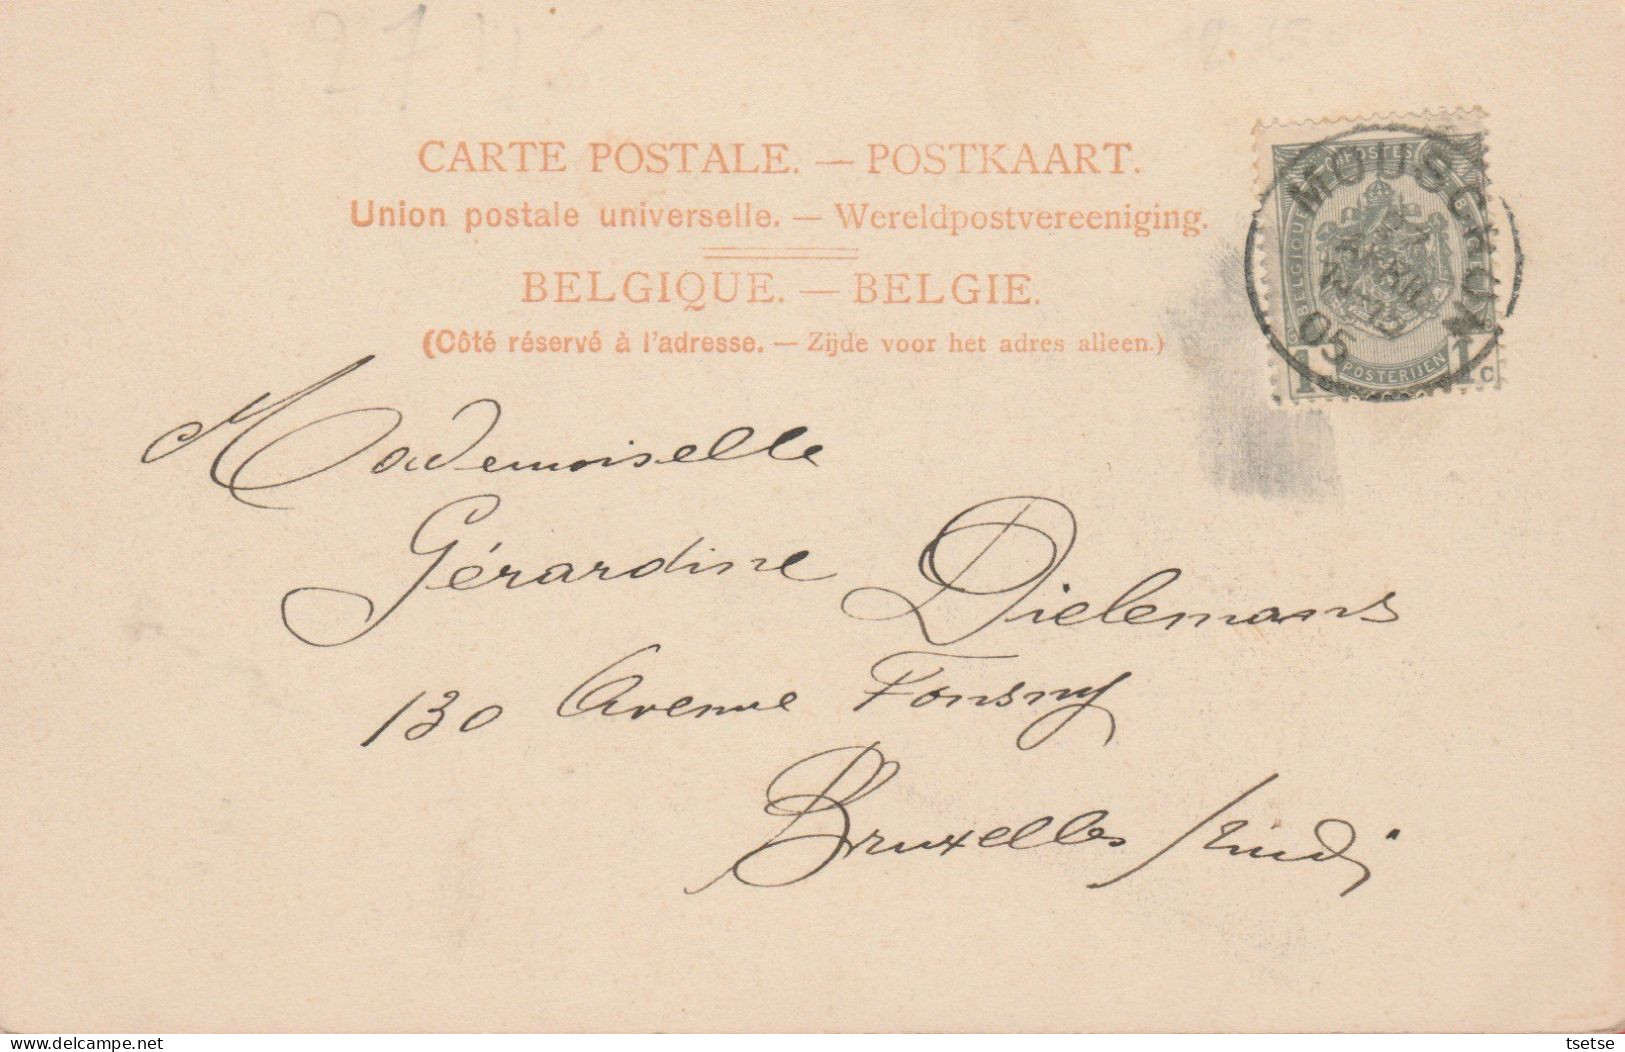 CARTE POSTALE. — POSTKAART.
Union postale universelle. — Wereldpostvereeniging.
BELGIQUE. — BELGIE.
(Côté réservé à l'adresse. — Zijde voor het adres alleen.)
MOUSCRON
AVRIL
05
BELGIQUE
POSTERIJEN
1 1c
Mademoiselle
Gérardine Dielemans
130 Avenue Fonsny
Bruxelles /midi
tsetse